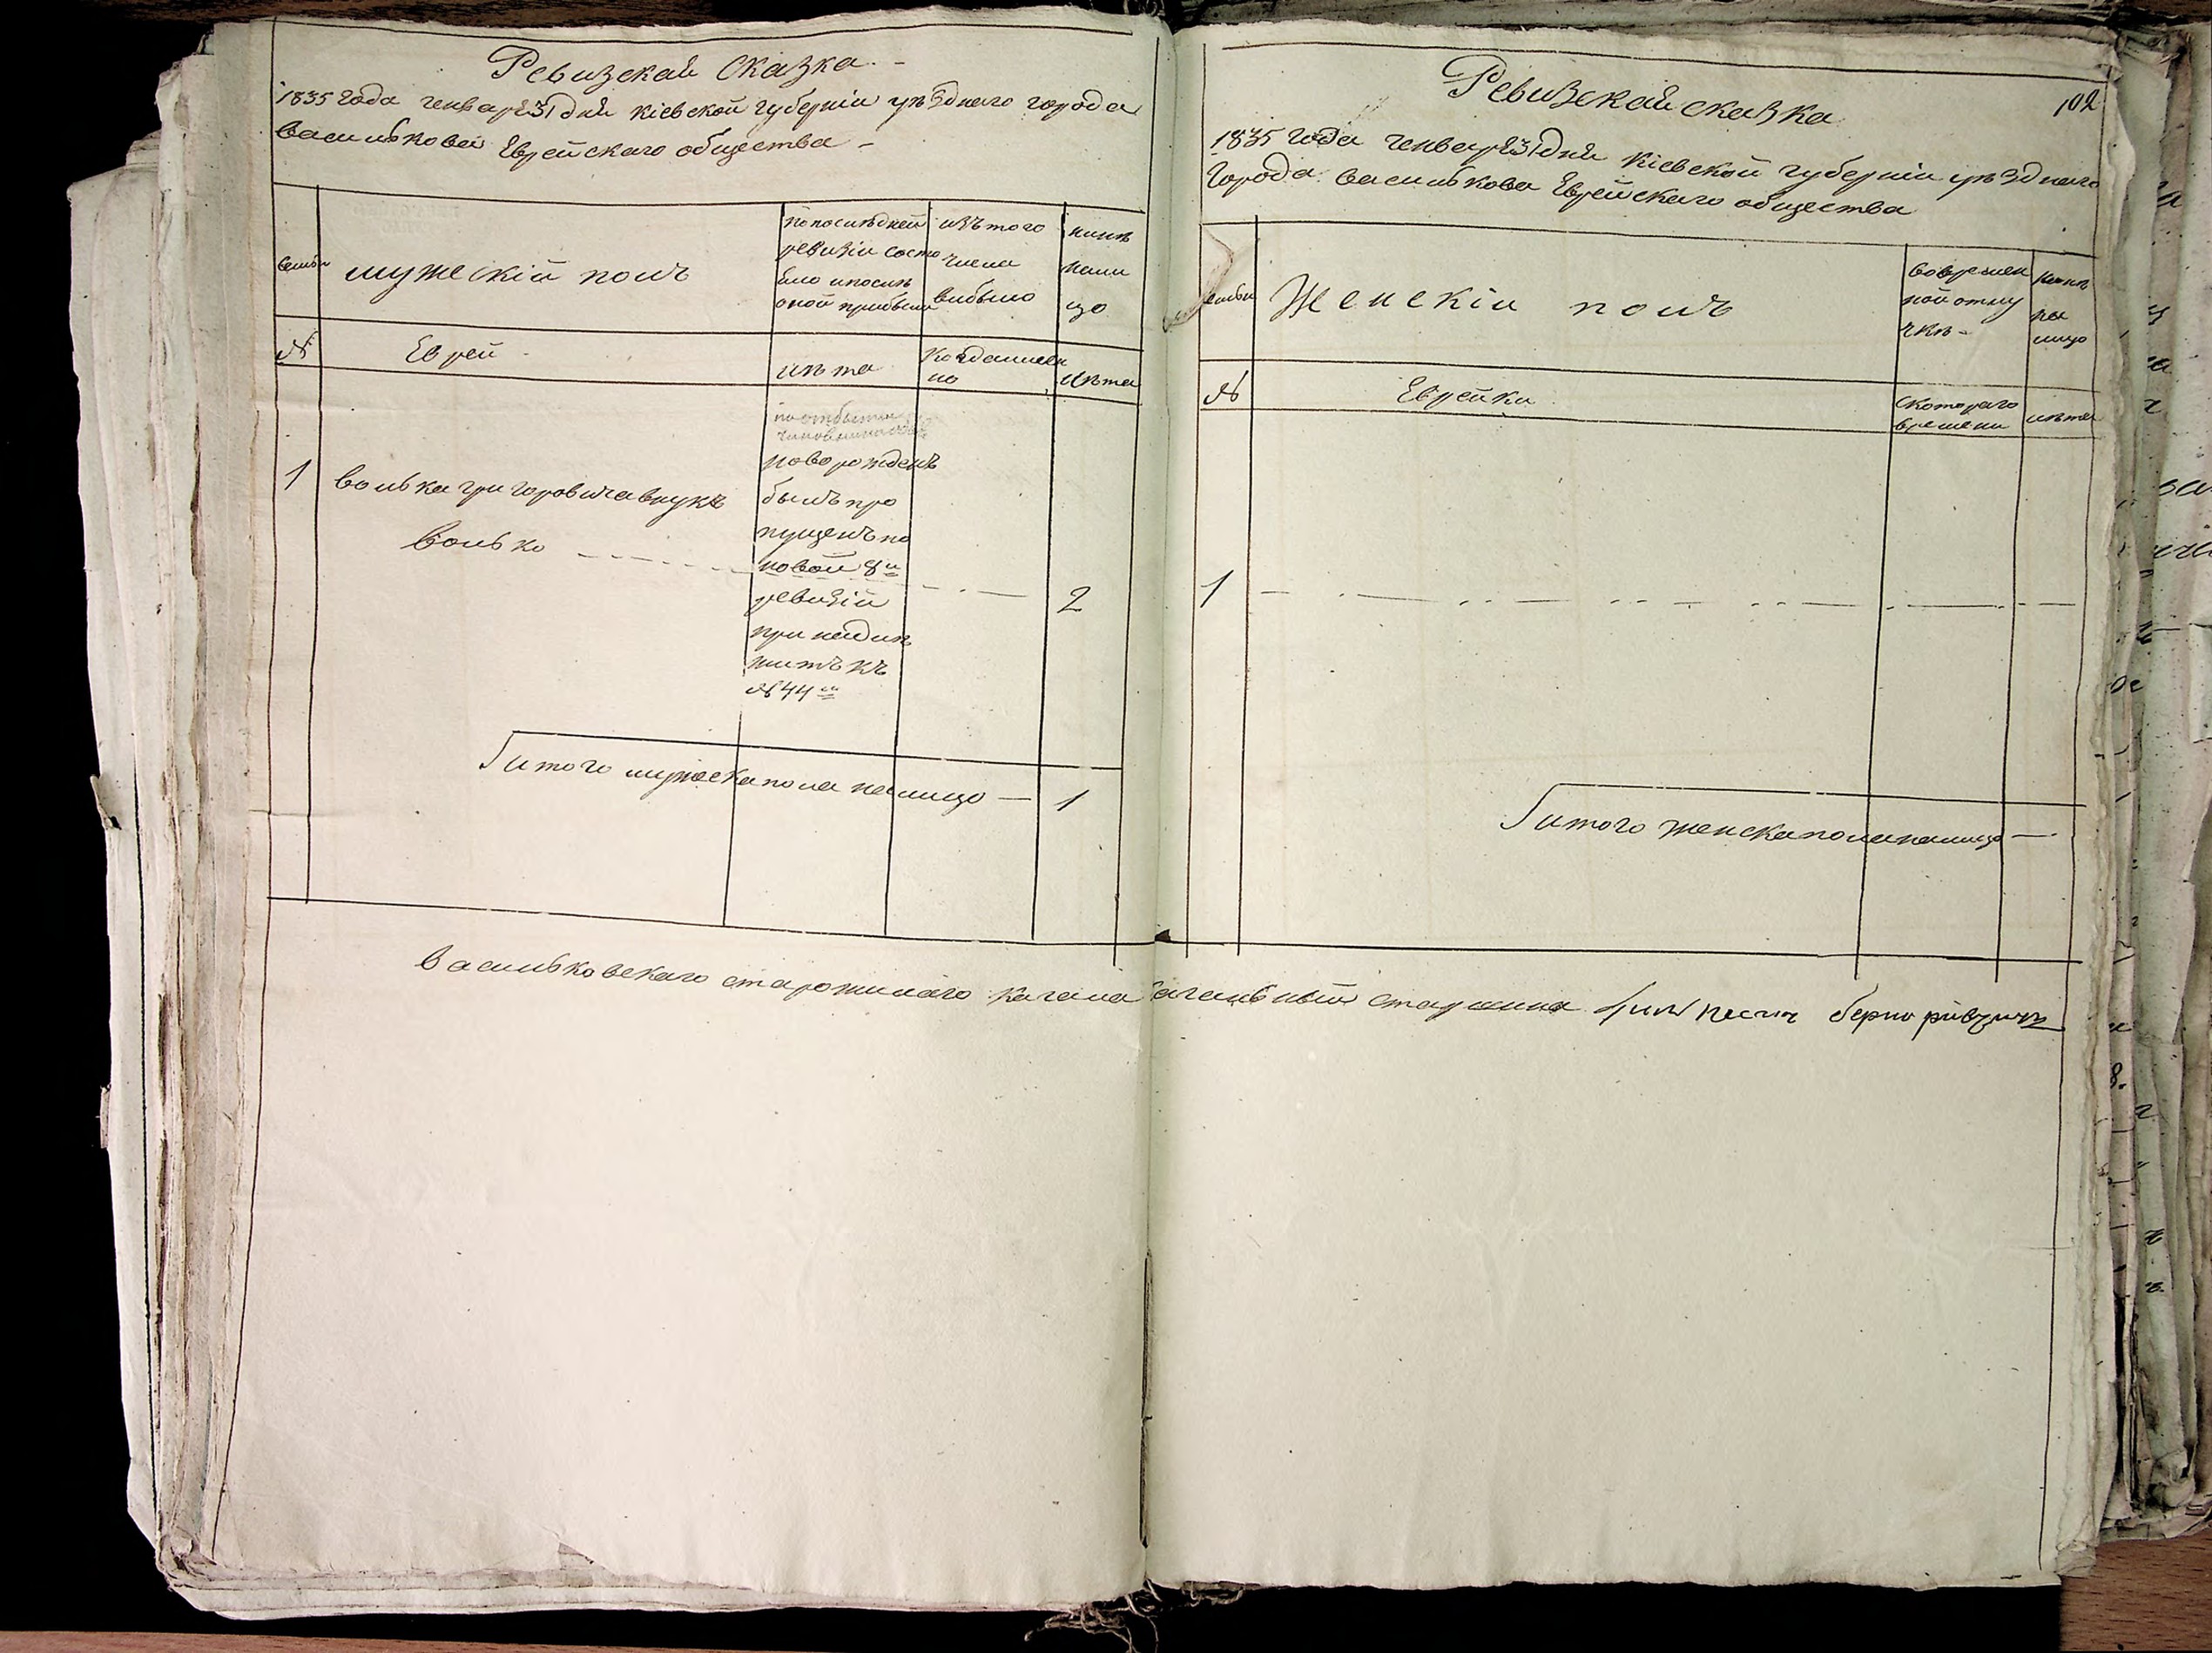 Ревизская Сказка
1835 года генваря 31 дня Кіевской губерніи уѣзднаго города
Василькова Еврейскаго общества
семьи
мужескій полъ
по послѣдней
ревизіи состо
яло и послѣ
оной прибыло
изъ того
числа
выбыло
нынѣ
нали
цо
№
Еврей
лѣта
Когда именно
лѣта
по отбытіи
новорожденъ
1
Волька григоровича внукъ
былъ про
пущенъ по
Волько
новой 8й
ревизіи
2
принадле
житъ къ
№ 44му
итого мужеска пола налицо — 1
102
Ревизская сказка
1835 года генваря 31 дня Кіевской губерніи уѣзднаго
города Василькова Еврейскаго общества
семьи
Женскій полъ
во времен
ной отлу
чкѣ
нынѣ
на
лицо
№
Еврейки
с котораго
времени
лѣта
1
итого женска пола налицо —
Васильковскаго старожилаго кагала кагальный старшина